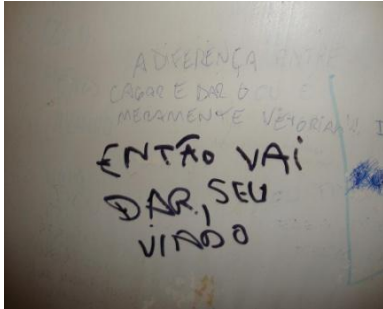 A DIFERENÇA ENTRE
CAGAR E DAR O CU É
MERAMENTE VETORIAL
ENTÃO VAI
DAR, SEU
VIADO